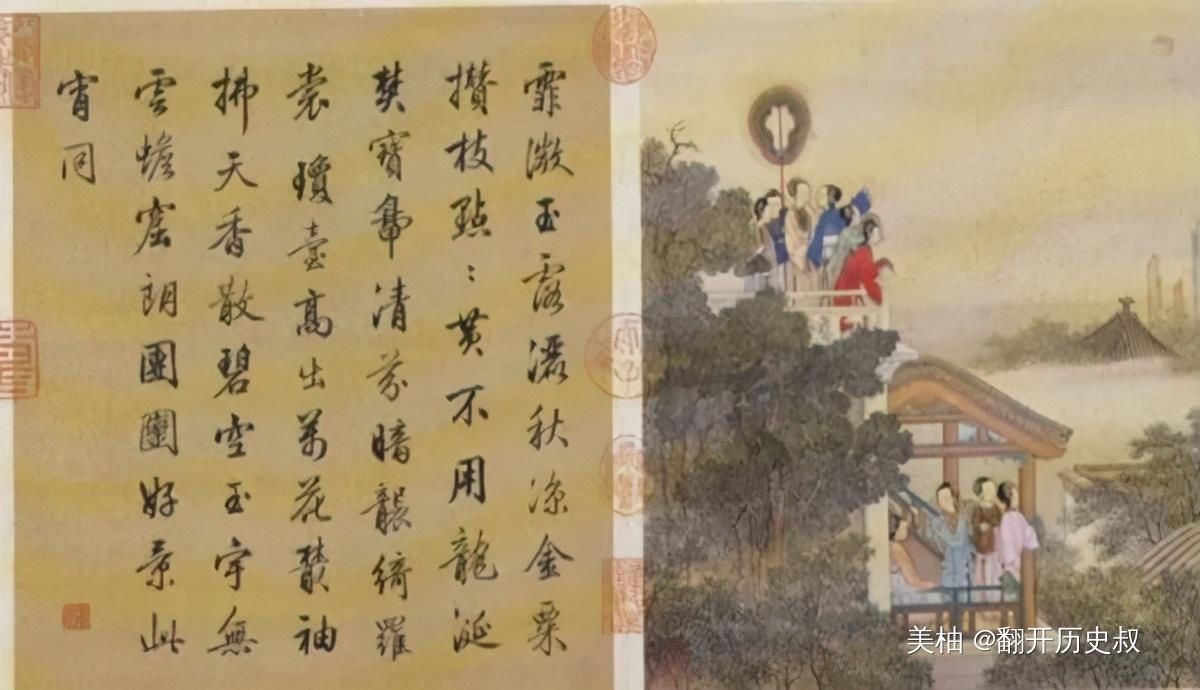 霏微玉露灑秋凉金粟
攢枝點〻黃不用龍涎
焚寶鼎清芬暗襲綺羅
裳瓊臺高出萬花叢袖
拂天香散碧空玉宇無
雲蟾窟朗團團好景此
宵同
美柚 @翻开历史叔